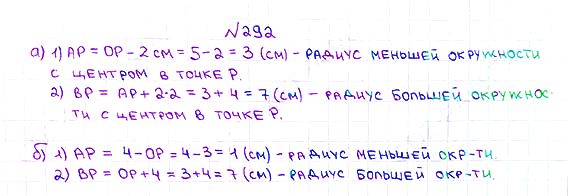 №292
а) 1) АР = ОР – 2 см = 5 – 2 = 3 (см) – РАДИУС МЕНЬШЕЙ ОКРУЖНОСТИ
С ЦЕНТРОМ В ТОЧКЕ Р.
2) ВР = АР + 2·2 = 3 + 4 = 7 (см) – РАДИУС БОЛЬШЕЙ ОКРУЖНОС-
ТИ С ЦЕНТРОМ В ТОЧКЕ Р.
б) 1) АР = 4 – ОР = 4 – 3 = 1 (см) – РАДИУС МЕНЬШЕЙ ОКР-ТИ.
2) ВР = ОР + 4 = 3 + 4 = 7 (см) – РАДИУС БОЛЬШЕЙ ОКР-ТИ.